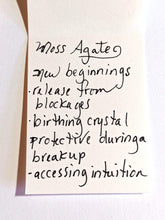 Moss Agate
new beginnings
· release from
blockages
· birthing crystal
protective during a
breakup
· accessing intuition